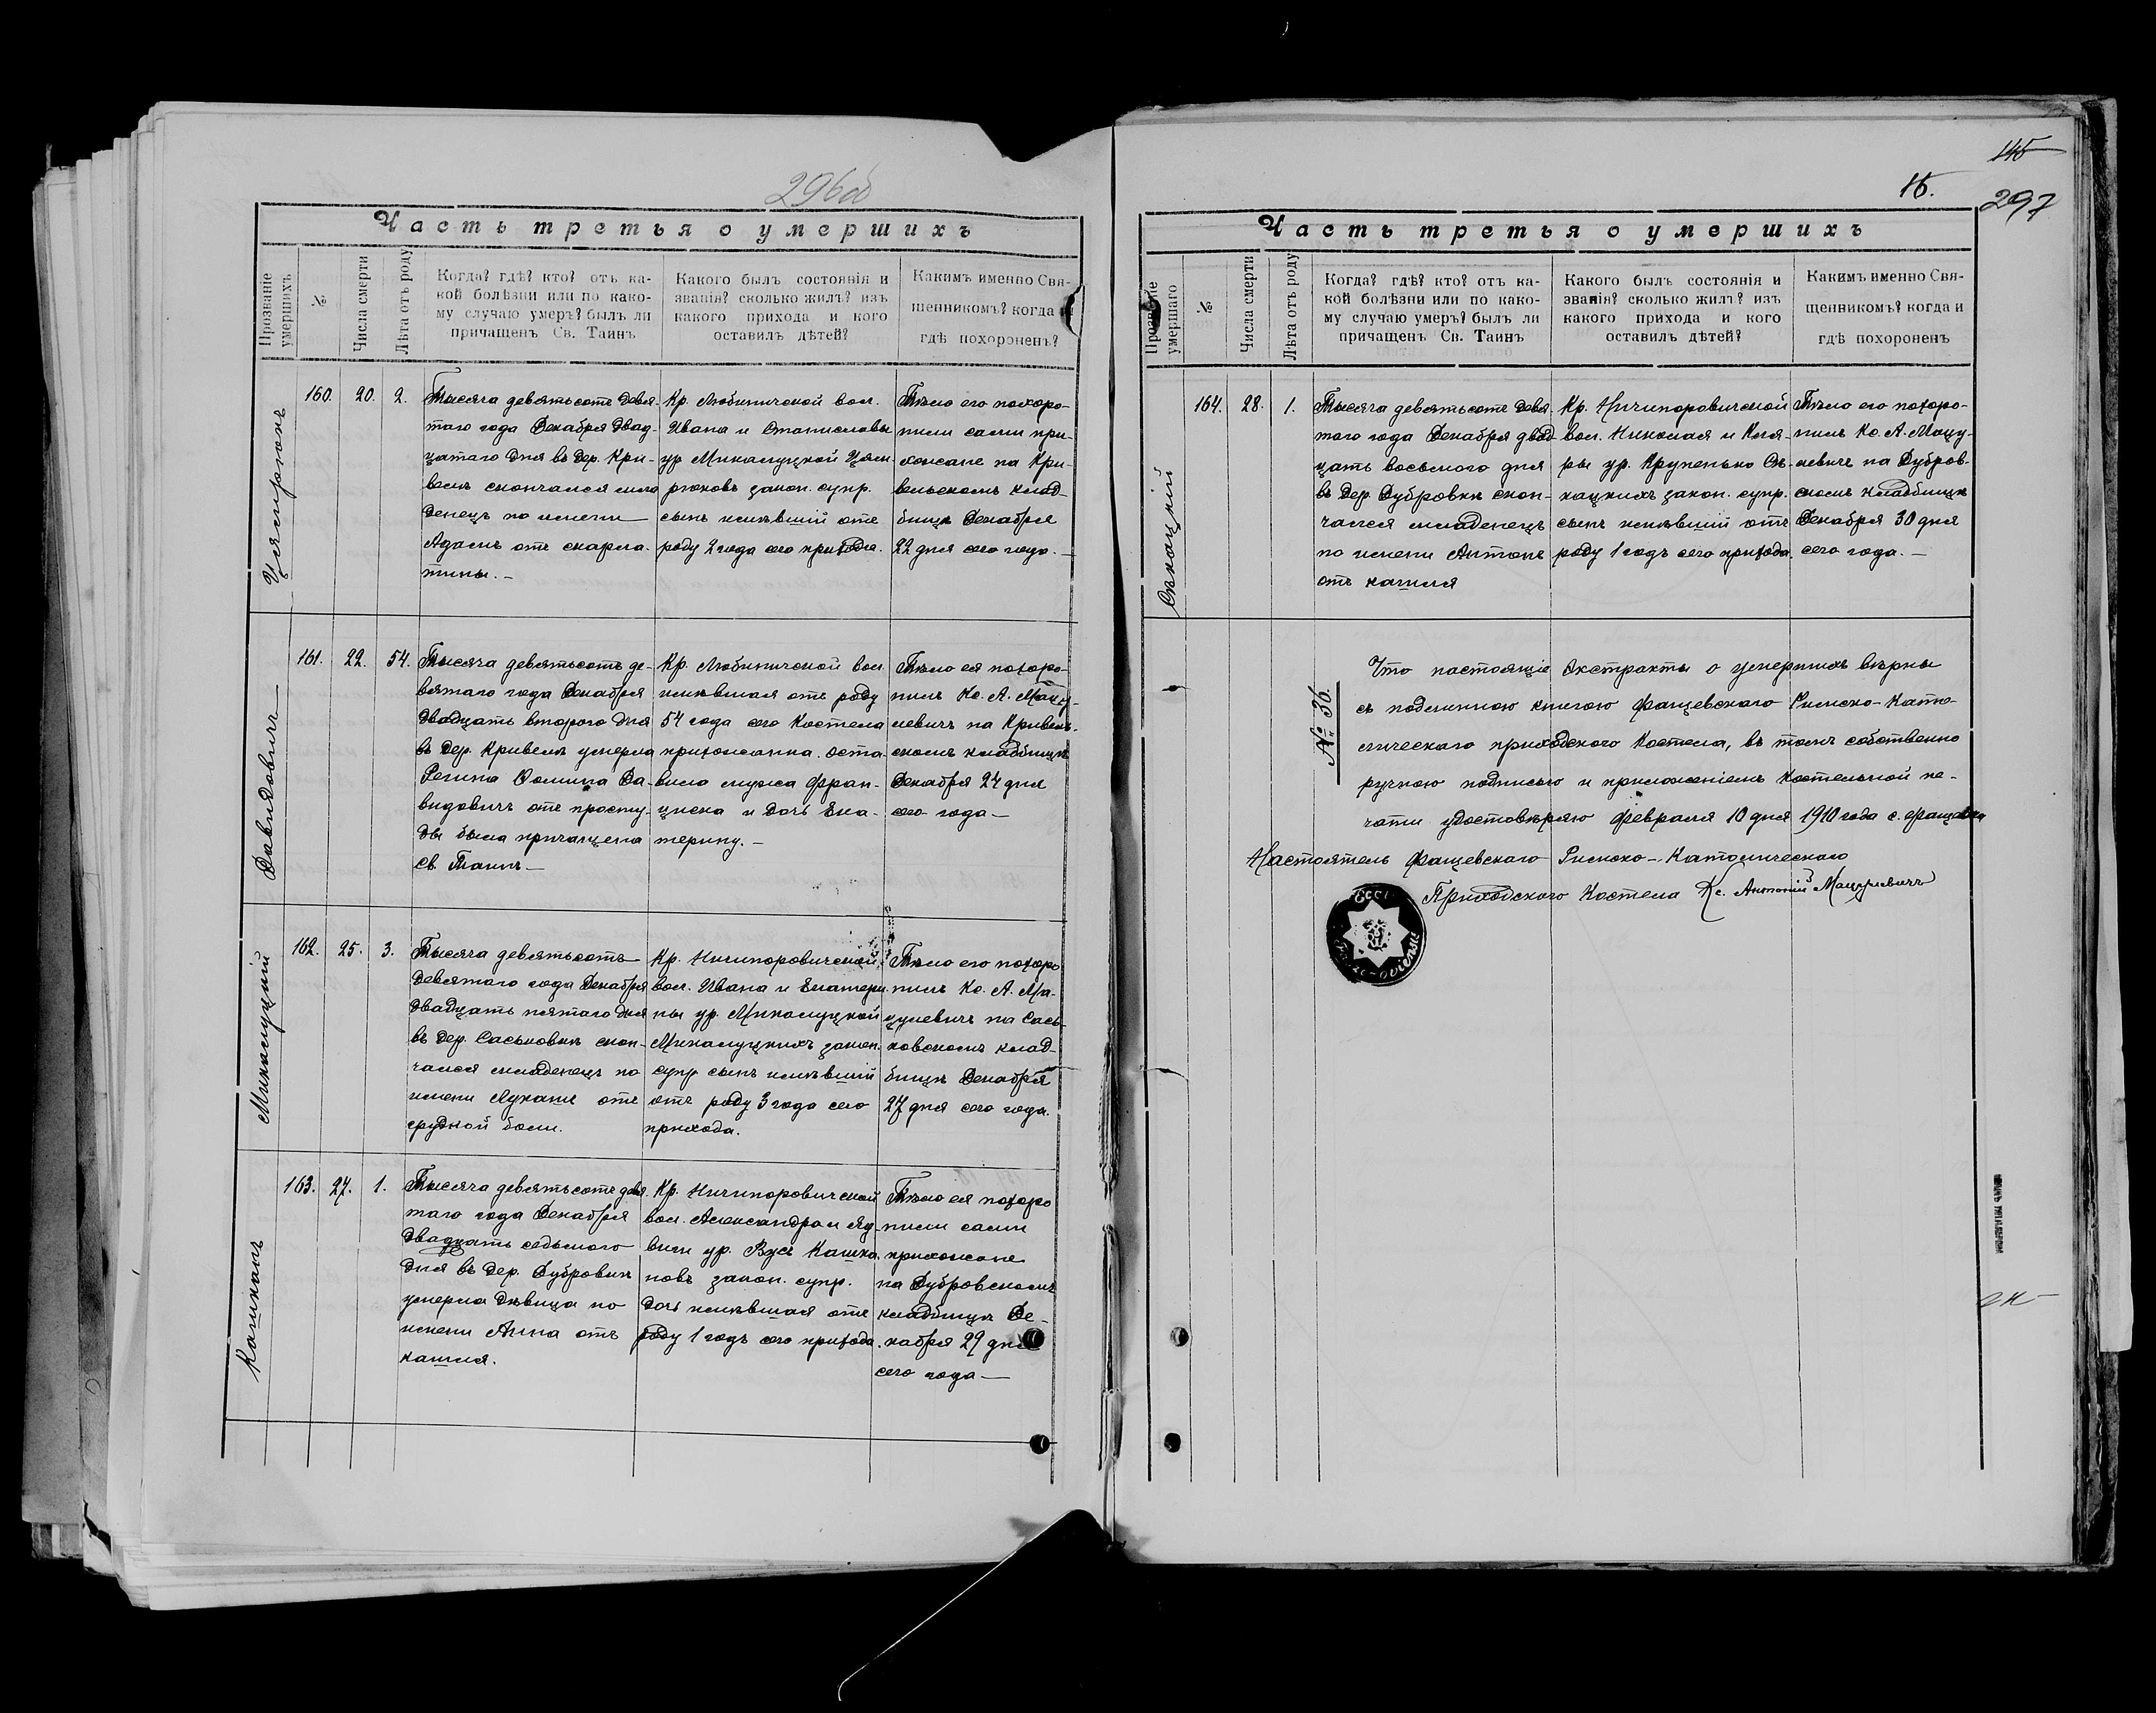 296об
Часть третья о умершихъ
Прозваніе умершихъ
№
Числа смерти
Лѣта отъ роду
Когда? гдѣ? кто? отъ ка-
кой болѣзни или по како-
му случаю умеръ? былъ ли
причащенъ Св. Таинъ
Какого былъ состоянія и
званія? сколько жилъ? изъ
какого прихода и кого
оставилъ дѣтей?
Какимъ именно Свя-
щенникомъ? когда
гдѣ похороненъ?
160. 20. 2.
Тысяча девятьсотъ девя-
таго года Декабря двад-
цатаго дня въ дер. Кри-
вели скончался мла
денецъ по имени
Адамъ отъ скарла-
тины. –
Кр. Любиничской вол.
Ивана и Станиславы
ур Микалуцкой Цям-
рюковъ закон. супр.
сынъ имѣвшій отъ
роду 2 года сего прихода.
Тѣло его похоро-
нили сами при-
хожане на Кри-
вельскомъ клад-
бищѣ Декабря
22 дня сего года. –
Давидовичъ
161. 22. 54.
Тысяча девятьсотъ де-
вятаго года Декабря
двадцать второго дня
въ дер. Кривели умерла
Регина Фомина Да-
видовичъ отъ просту-
ды была причащена
св. Таинъ –
Кр. Любиничской вол
имѣвшая отъ роду
54 года сего Костела
прихожанка. Оста-
вила мужа Фран-
циска и дочь Ека-
терину. –
Тѣло ея похоро-
нилъ Кс. А. Мацу-
левичъ на Кривель-
скомъ кладбищѣ
Декабря 24 дня
сего года –
Микалуцкій
162. 25. 3.
Тысяча девятьсотъ
девятаго года Декабря
двадцать пятаго дня
въ дер. Саськовкѣ скон-
чался младенецъ по
имени Лукашъ отъ
грудной боли.
Кр. Ничипоровичской
вол. Ивана и Екатери-
ны ур. Микалуцкой
Микалуцкихъ закон.
супр сынъ имѣвшій
отъ роду 3 года сего
прихода.
Тѣло его похоро
нилъ Кс. А. Ма-
цулевичъ на Сась-
ковскомъ клад-
бищѣ Декабря
27 дня сего года.
Кашканъ
163. 27. 1.
Тысяча девятьсотъ девя
таго года Декабря
двадцать седьмого
дня въ дер. Дубровкѣ
умерла дѣвица по
имени Анна отъ
кашля.
Кр. Ничипоровичской
вол. Александра и Яд-
виги ур. Вусъ Кашка-
новъ закон. супр.
дочь имѣвшая отъ
роду 1 годъ сего прихода.
Тѣло ея похоро
нили сами
прихожане
на Дубровскомъ
кладбищѣ Де-
кабря 29 дня
сего года –
15.
297
Часть третья о умершихъ
Прозваніе умершаго
№
Числа смерти
Лѣта отъ роду
Когда? гдѣ? кто? отъ ка-
кой болѣзни или по како-
му случаю умеръ? былъ ли
причащенъ Св. Таинъ
Какого былъ состоянія и
званія? сколько жилъ? изъ
какого прихода и кого
оставилъ дѣтей?
Какимъ именно Свя-
щенникомъ? когда и
гдѣ похороненъ
Сѣкацкій
164. 28. 1.
Тысяча девятьсотъ девя-
того года Декабря двад
цать восьмого дня
въ дер. Дубровкѣ скон-
чался младенецъ
по имени Антонъ
отъ кашля
Кр. Ничипоровичской
вол. Николая и Кля-
ры ур. Крупенько Сѣ-
кацкихъ закон. супр.
сынъ имѣвшій отъ
роду 1 годъ сего прихода.
Тѣло его похоро-
нилъ Кс. А. Мацу-
левичъ на Дубров-
скомъ кладбищѣ
Декабря 30 дня
сего года. –
№ 36.
Что настоящіе Экстракты о умершихъ вѣрны
съ подлинною книгою Фащевскаго Римско-Като-
лическаго приходского Костела, въ томъ собственно
ручною подписью и приложеніемъ Костельной пе-
чати удостовѣряю Февраля 10 дня 1910 года с. Фащевка
Настоятель Фащевскаго Римско-Католическаго
Приходского Костела Кс. Антоній Мацулевичъ